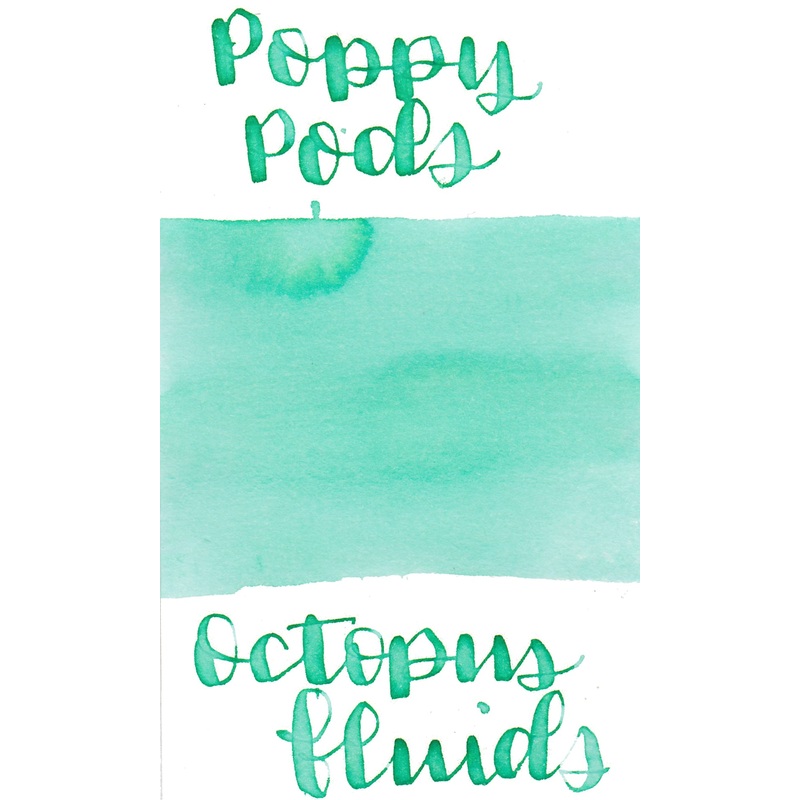 Poppy
Pods
Octopus
fluids